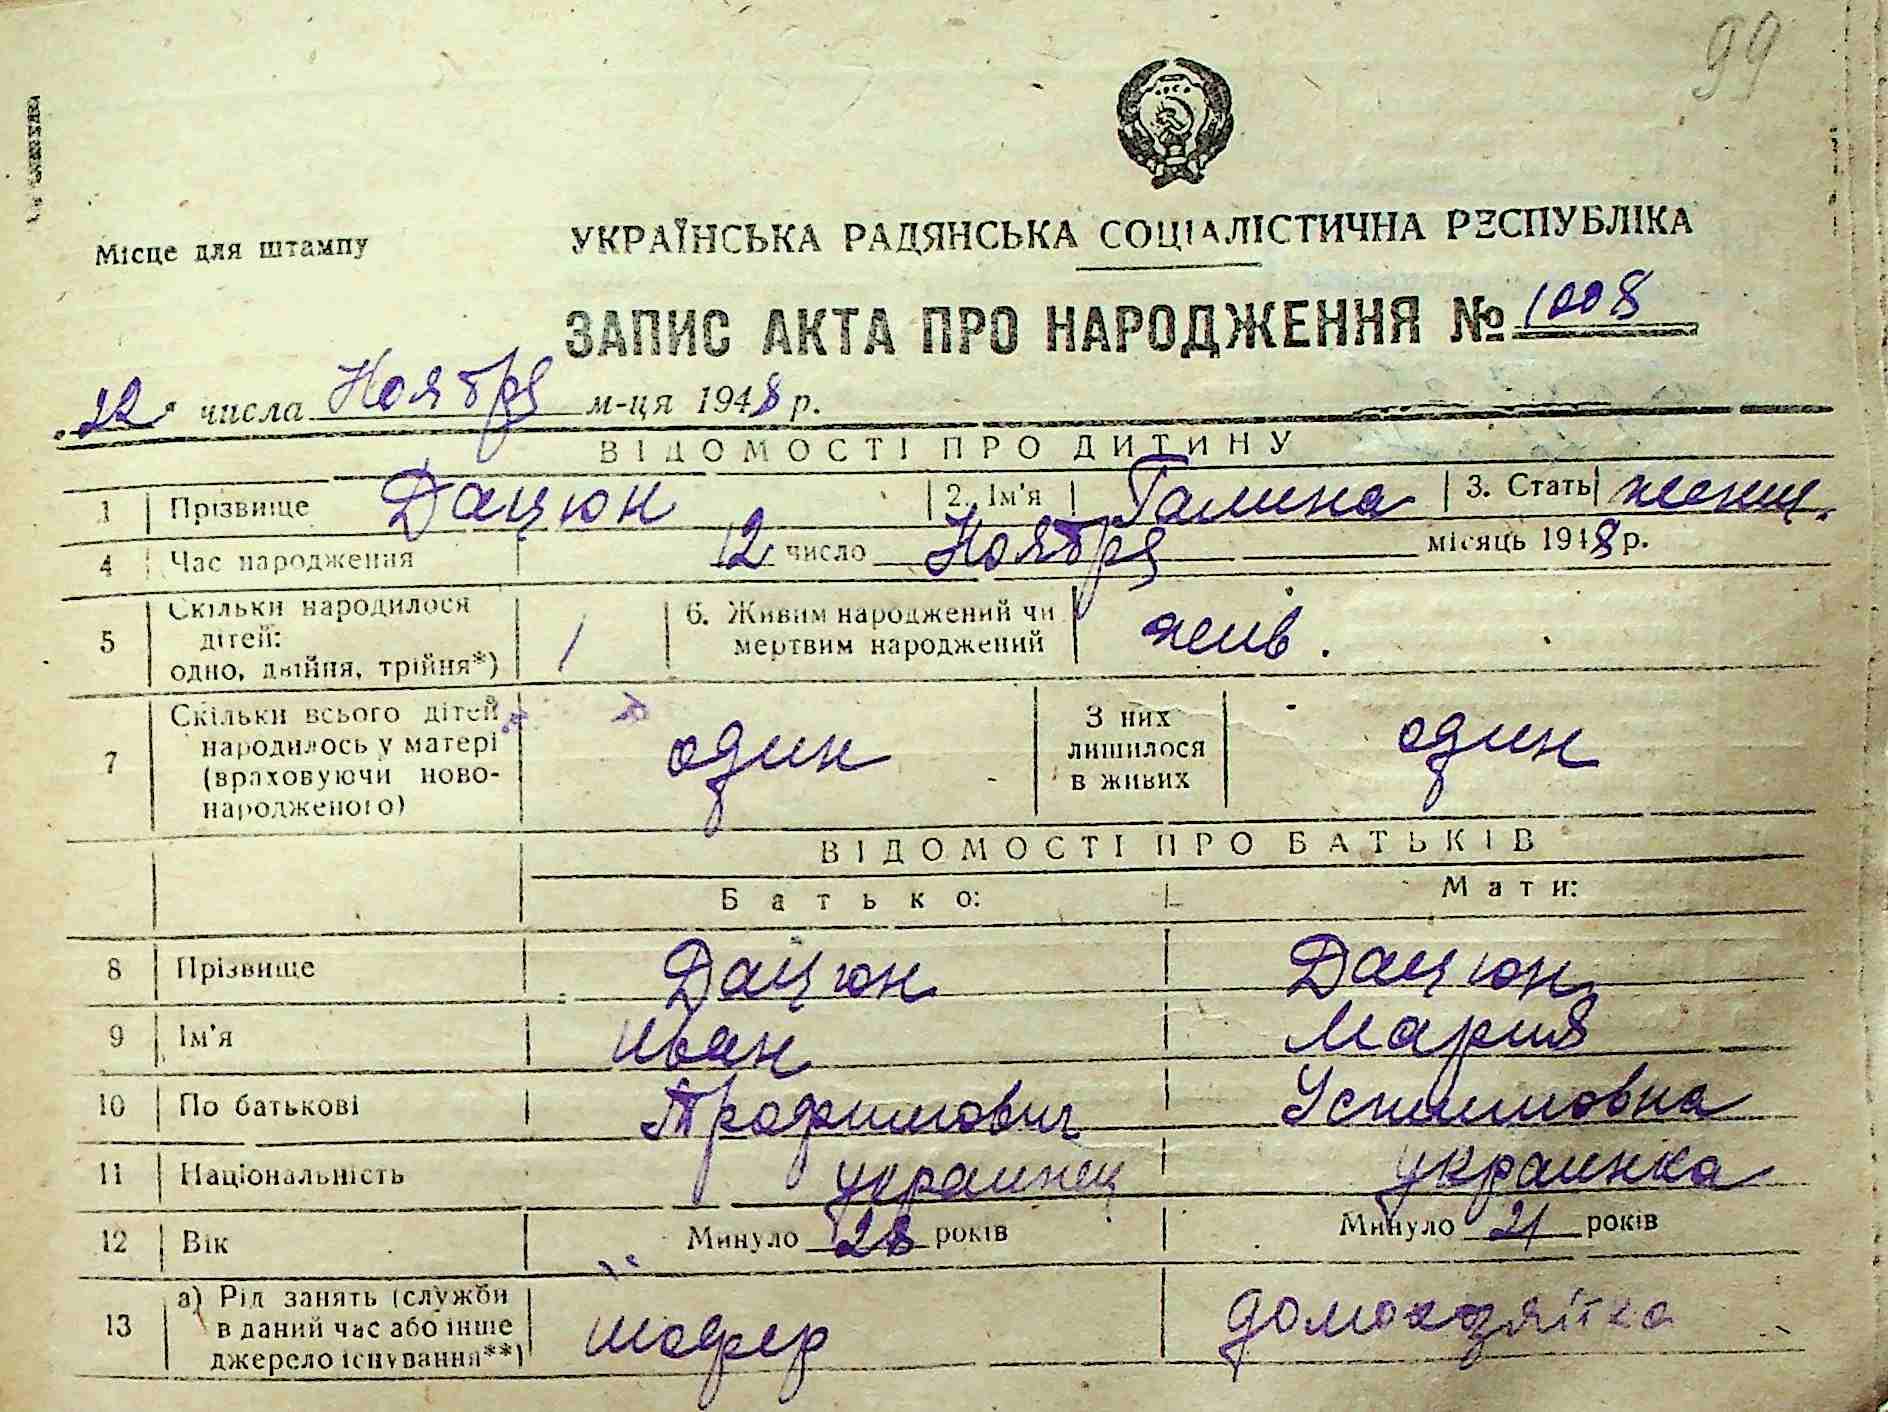 99
Місце для штампу
УКРАЇНСЬКА РАДЯНСЬКА СОЦІАЛІСТИЧНА РЕСПУБЛІКА
ЗАПИС АКТА ПРО НАРОДЖЕННЯ № 1008
22 числа Ноября м-ця 1948 р.
ВІДОМОСТІ ПРО ДИТИНУ
1 Прізвище Дацюн 2. Ім'я Галина 3. Стать женщ.
4 Час народження 12 число Ноября місяць 1948 р.
5 Скільки народилося дітей: одно, двійня, трійня*) 1 6. Живим народжений чи мертвим народжений жив.
7 Скільки всього дітей народилось у матері (враховуючи ново-народженого) один З них лишилося в живих один
ВІДОМОСТІ ПРО БАТЬКІВ
Батько: Мати:
8 Прізвище Дацюн Дацюн
9 Ім'я Иван Мария
10 По батькові Трофимович Устимовна
11 Національність украинец украинка
12 Вік Минуло 28 років Минуло 21 років
13 а) Рід занять (служби в даний час або інше джерело існування**) шофер домохозяйка